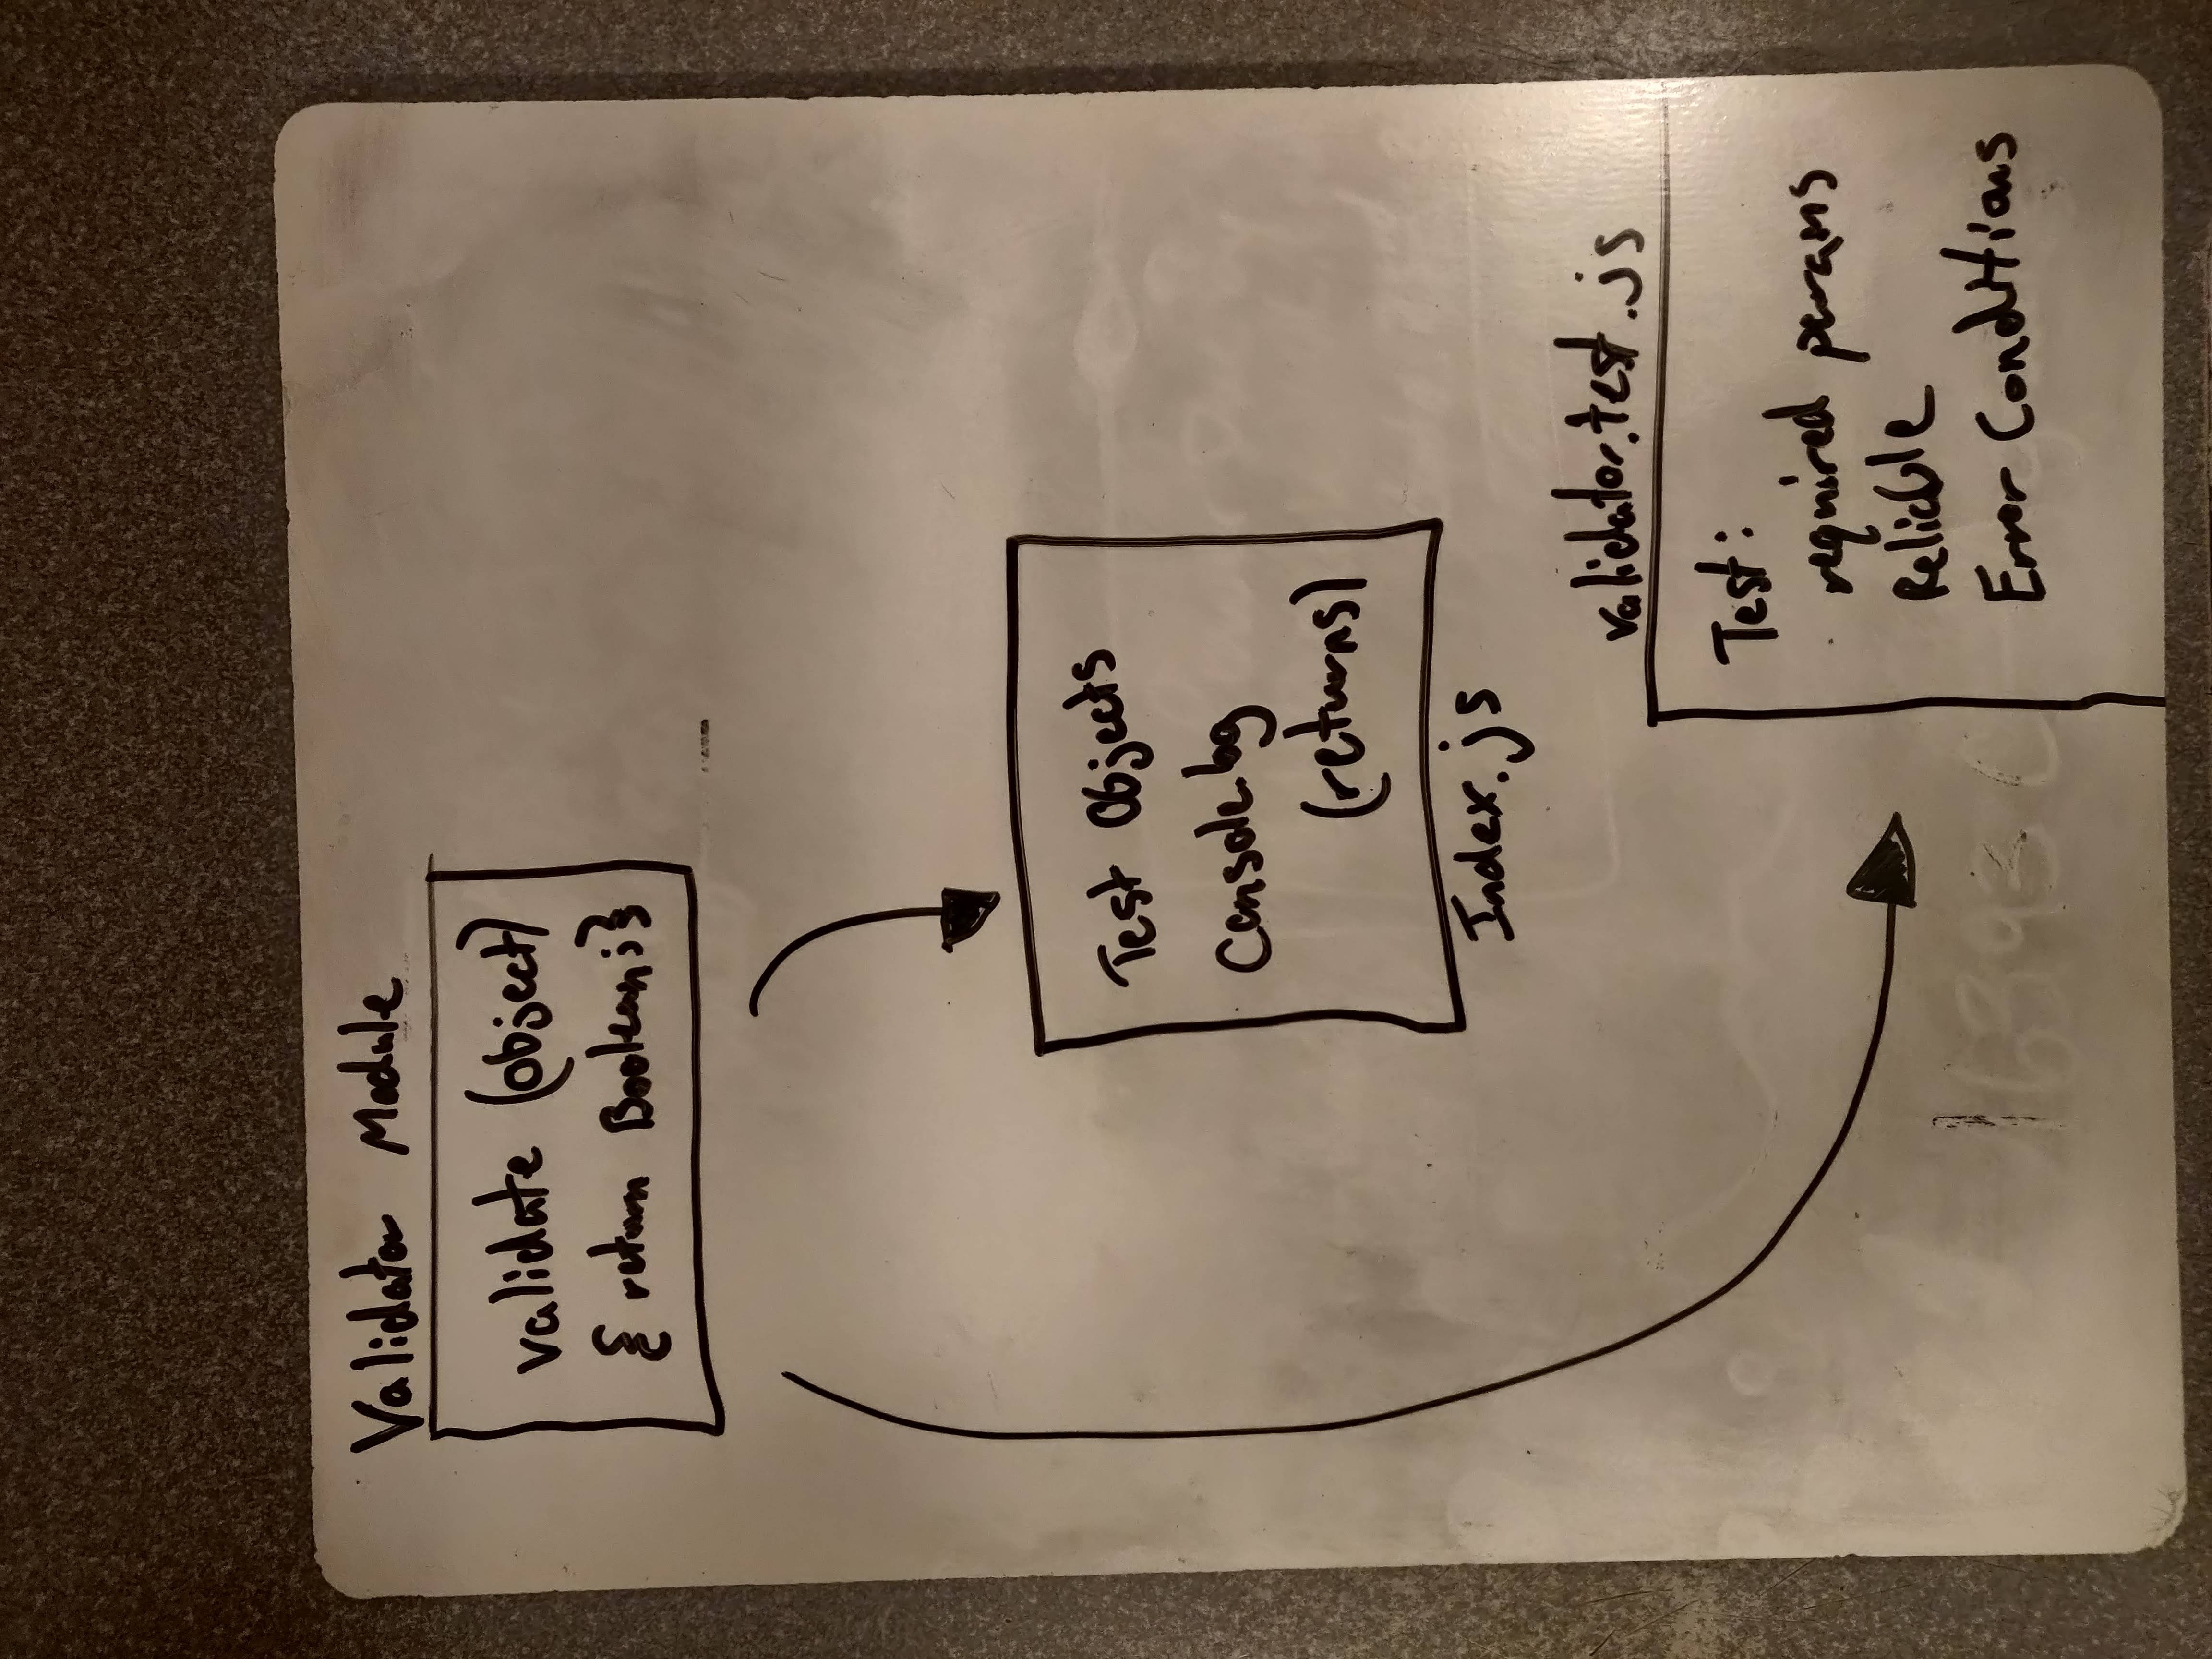 Validator Module
validate (object)
{ return Boolean;}
Test Objects
Console.log
(returns)
Index.js
validator.test.js
Test:
required params
Reliable
Error Conditions